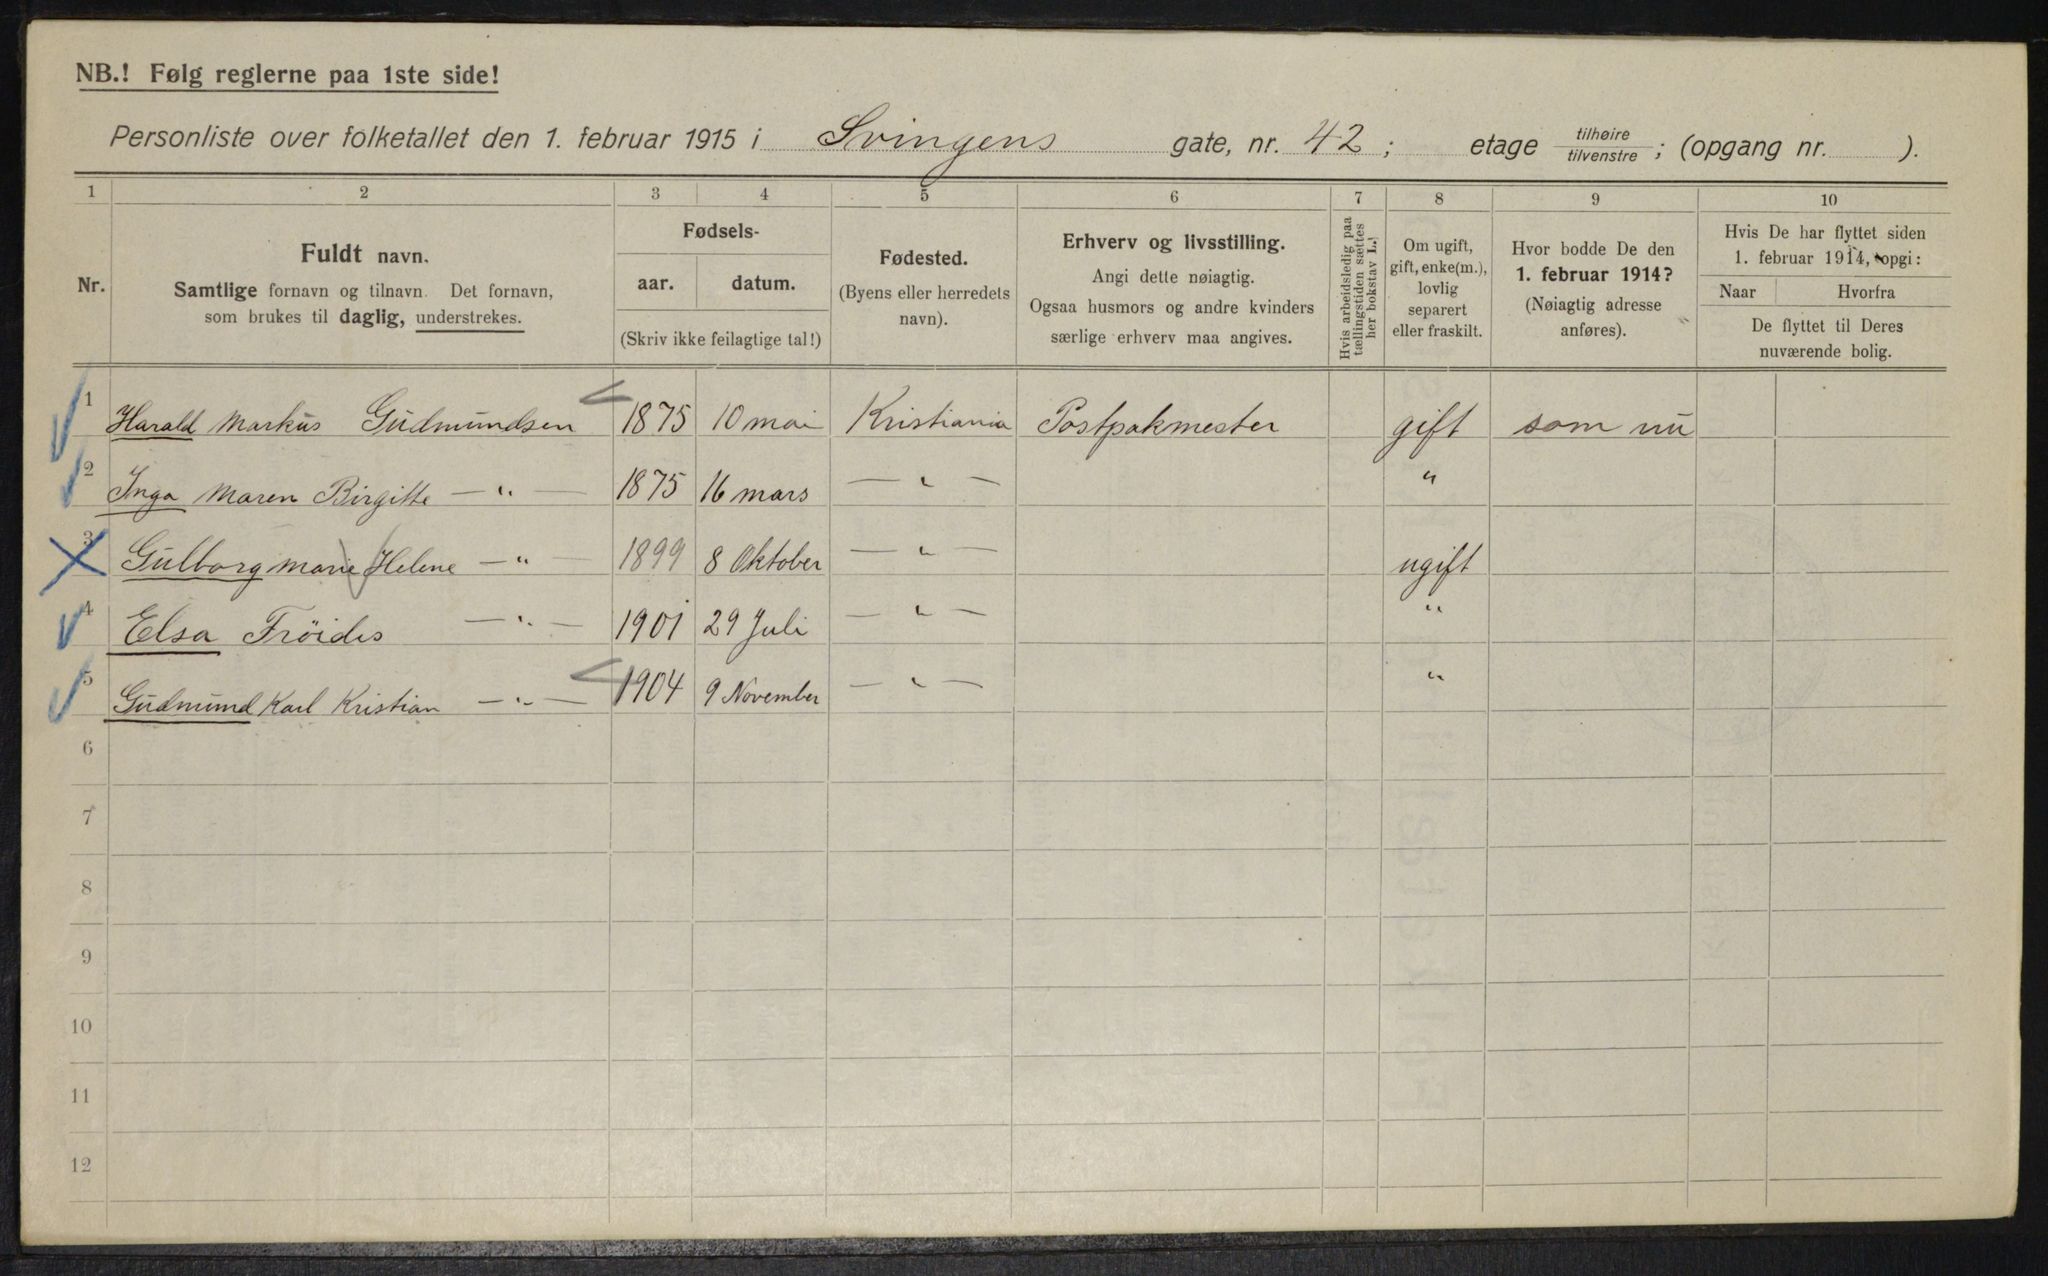 NB.! Følg reglerne paa 1ste side!
Personliste over folketallet den 1. februar 1915 i Svingens gate, nr. 42; etage tilhøire tilvenstre; (opgang nr. ).
1 2 3 4 5 6 7 8 9 10
Nr.
Fuldt navn.
Samtlige fornavn og tilnavn. Det fornavn,
som brukes til daglig, understrekes.
Fødsels-
aar. datum.
(Skriv ikke feilagtige tal!)
Fødested.
(Byens eller herredets
navn).
Erhverv og livsstilling.
Angi dette nøiagtig.
Ogsaa husmors og andre kvinders
særlige erhverv maa angives.
Hvis arbeidsledig paa
tællingstiden sættes
her bokstav L.!
Om ugift,
gift, enke(m.),
lovlig
separert
eller fraskilt.
Hvor bodde De den
1. februar 1914?
(Nøiagtig adresse
anføres).
Hvis De har flyttet siden
1. februar 1914, opgi:
Naar Hvorfra
De flyttet til Deres
nuværende bolig.
1 Harald Markus Gudmundsen 1875 10 mai Kristiania Postpakmester gift som nu
2 Inga Maren Birgitte — " — 1875 16 mars — " — "
3 Gulborg Marie Helene — " — 1899 8 Oktober — " — ugift
4 Elsa Fröidis — " — 1901 29 Juli — " — "
5 Gudmund Karl Kristian — " — 1904 9 November — " — "
6
7
8
9
10
11
12